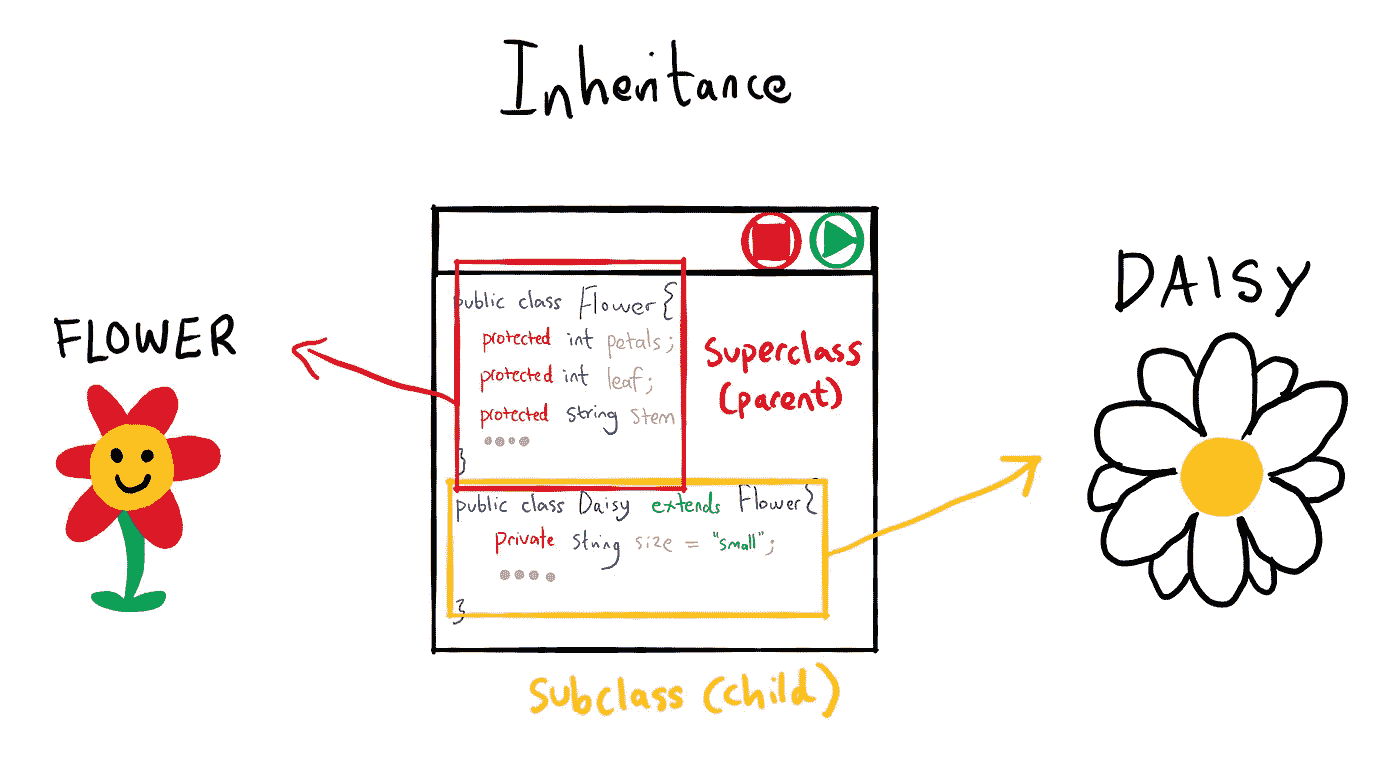 Inheritance
FLOWER
public class Flower {
protected int petals;
protected int leaf;
protected string stem
}
Superclass
(parent)
public class Daisy extends Flower {
private string size = "small";
}
Subclass (child)
DAISY